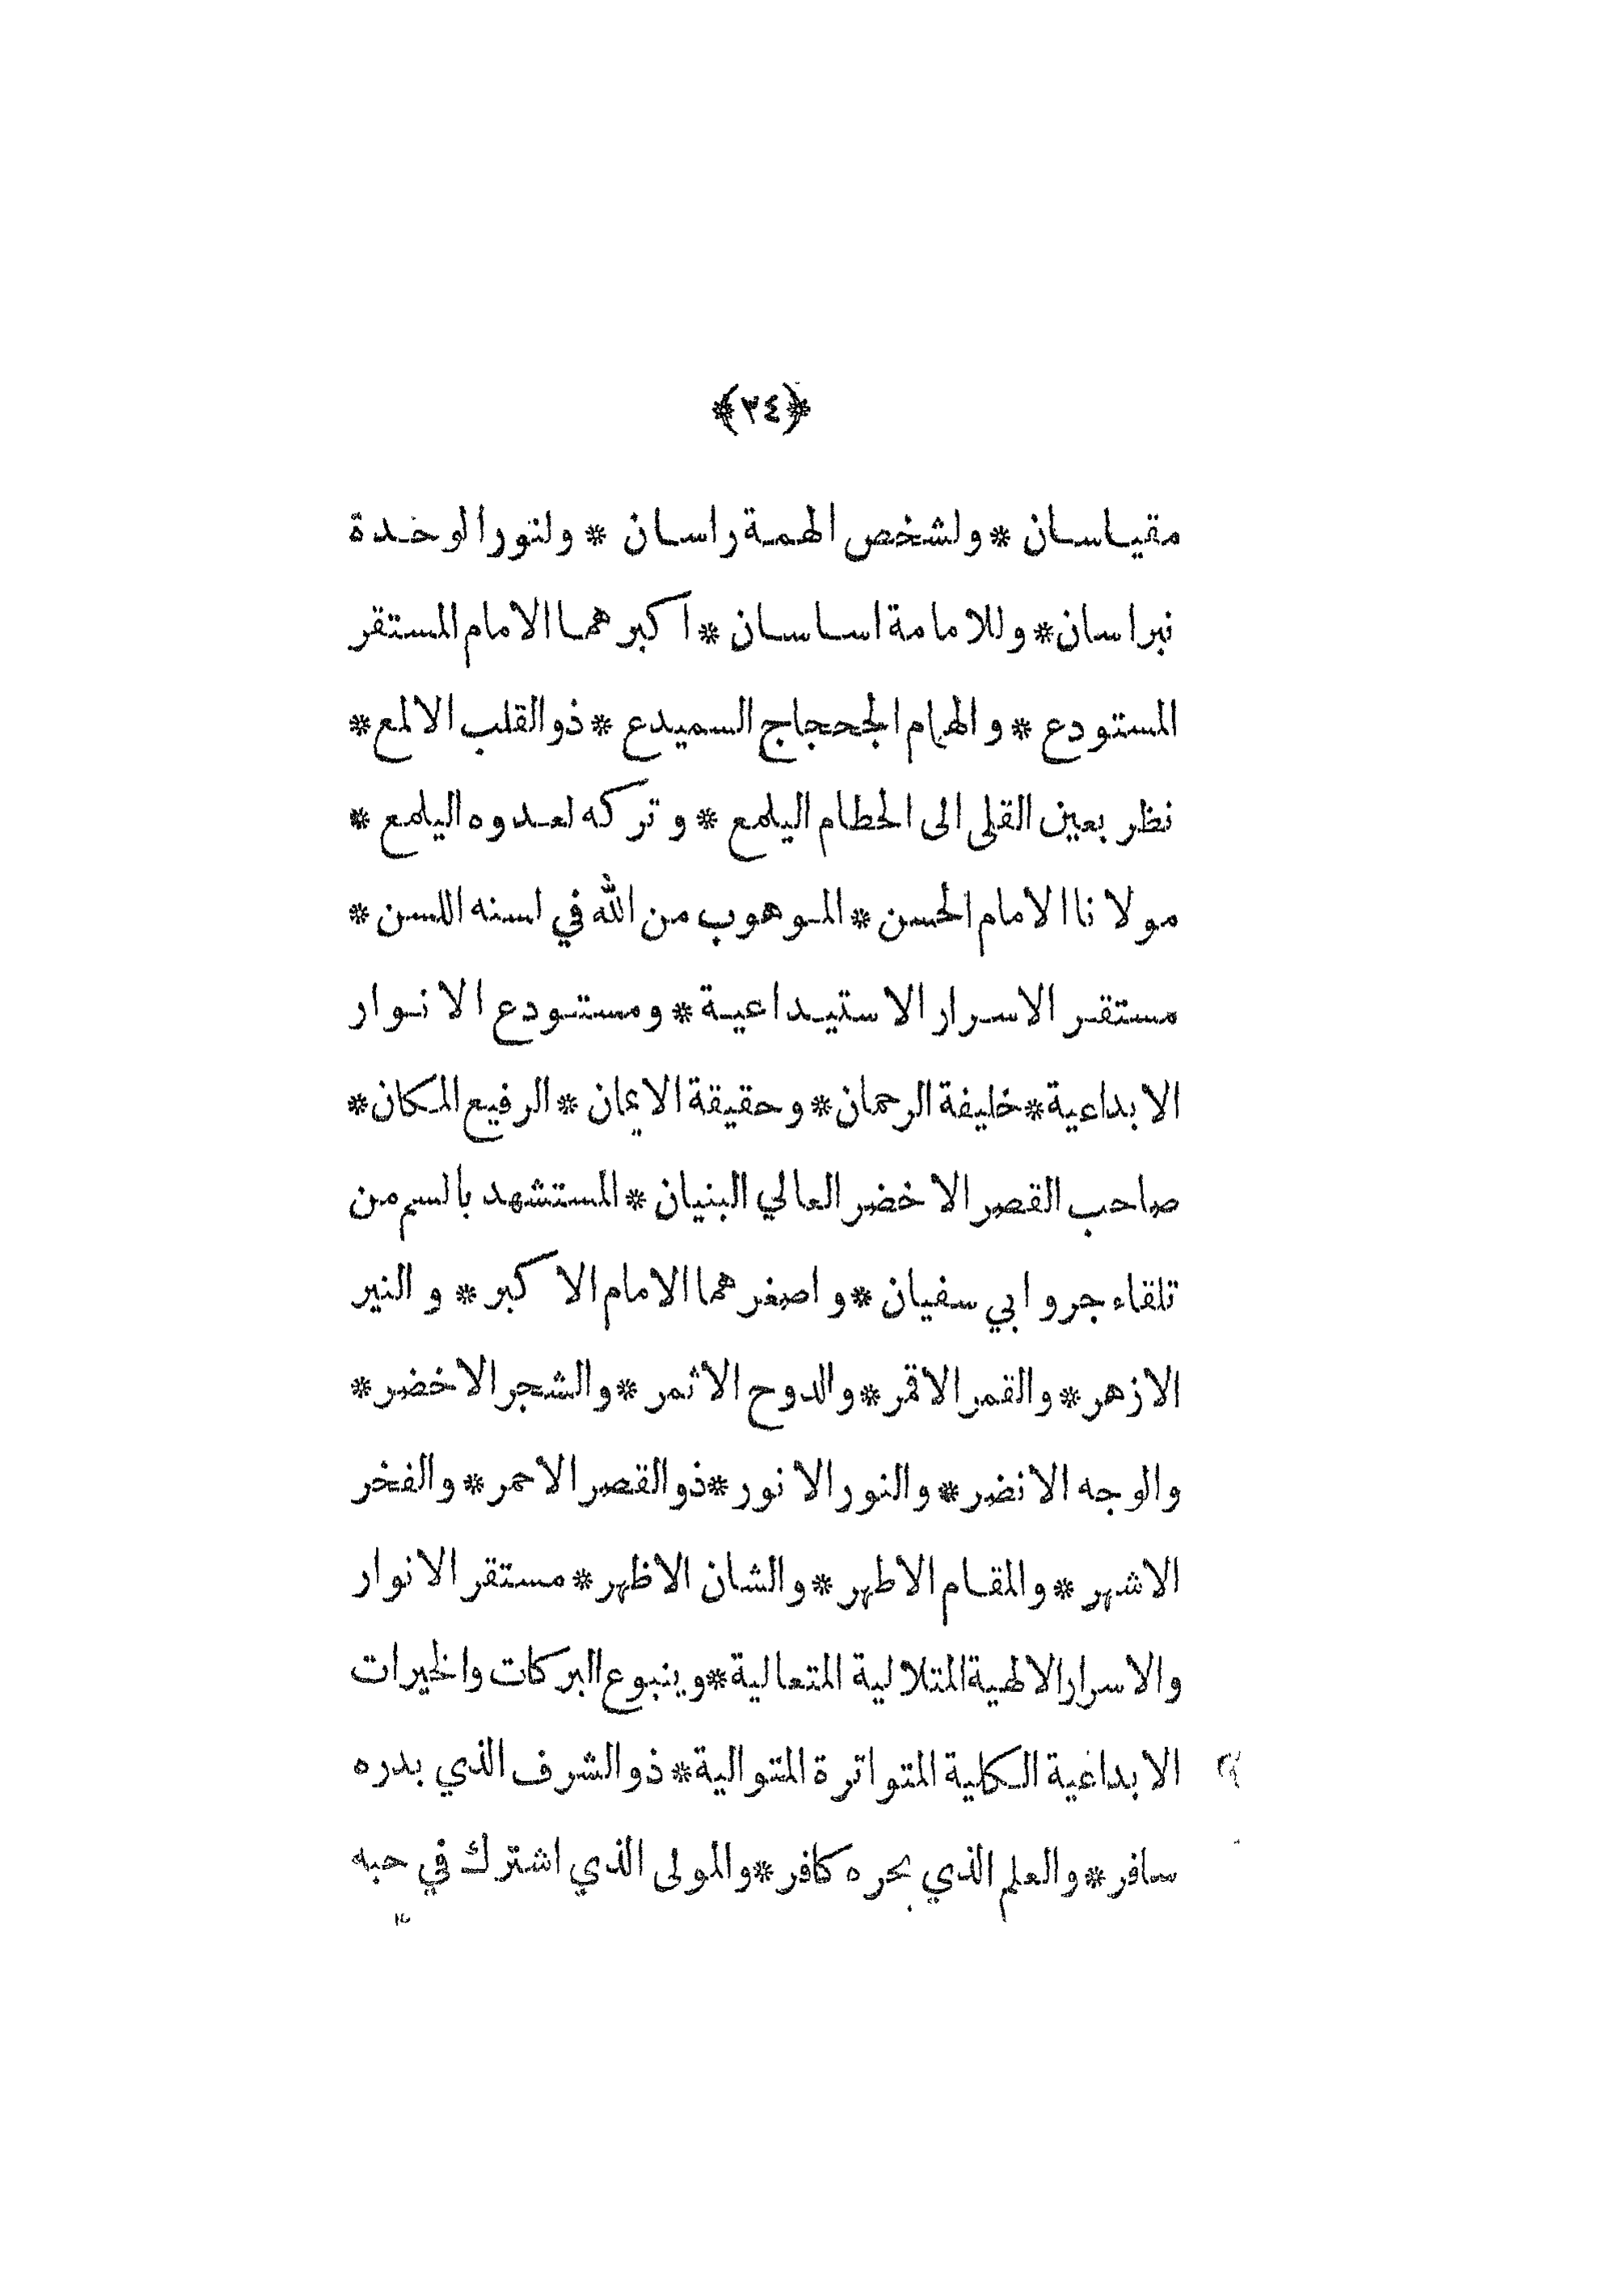 ﴿٣٤﴾
مقياسان * ولشخص الهمة راسان * ولنور الوحدة
نبراسان * وللامامة اساسان * اكبرهما الامام المستقر
المستودع * والهمام الجحجاج السميدع * ذو القلب الالمع *
نظر بعين القلى الى الحطام اليلمع * وتركه لعدوه اليلمع *
مولانا الامام الحسن * الموهوب من الله في لسنه اللسن *
مستقر الاسرار الاستيداعية * ومستودع الانوار
الابداعية * خليفة الرحمان * وحقيقة الايمان * الرفيع المكان *
صاحب القصر الاخضر العالي البنيان * المستشهد بالسم من
تلقاء جرو ابي سفيان * واصغرهما الامام الاكبر * والنير
الازهر * والقمر الاقمر * والدوح الاثمر * والشجر الاخضر *
والوجه الانضر * والنور الانور * ذو القصر الاحمر * والفخر
الاشهر * والمقام الاطهر * والشان الاظهر * مستقر الانوار
والاسرار الالهية المتلالية المتعالية * وينبوع البركات والخيرات
الابداعية الكلية المتواترة المتوالية * ذو الشرف الذي بدره
سافر * والعلم الذي بحره كافر * والمولى الذي اشترك في حبه